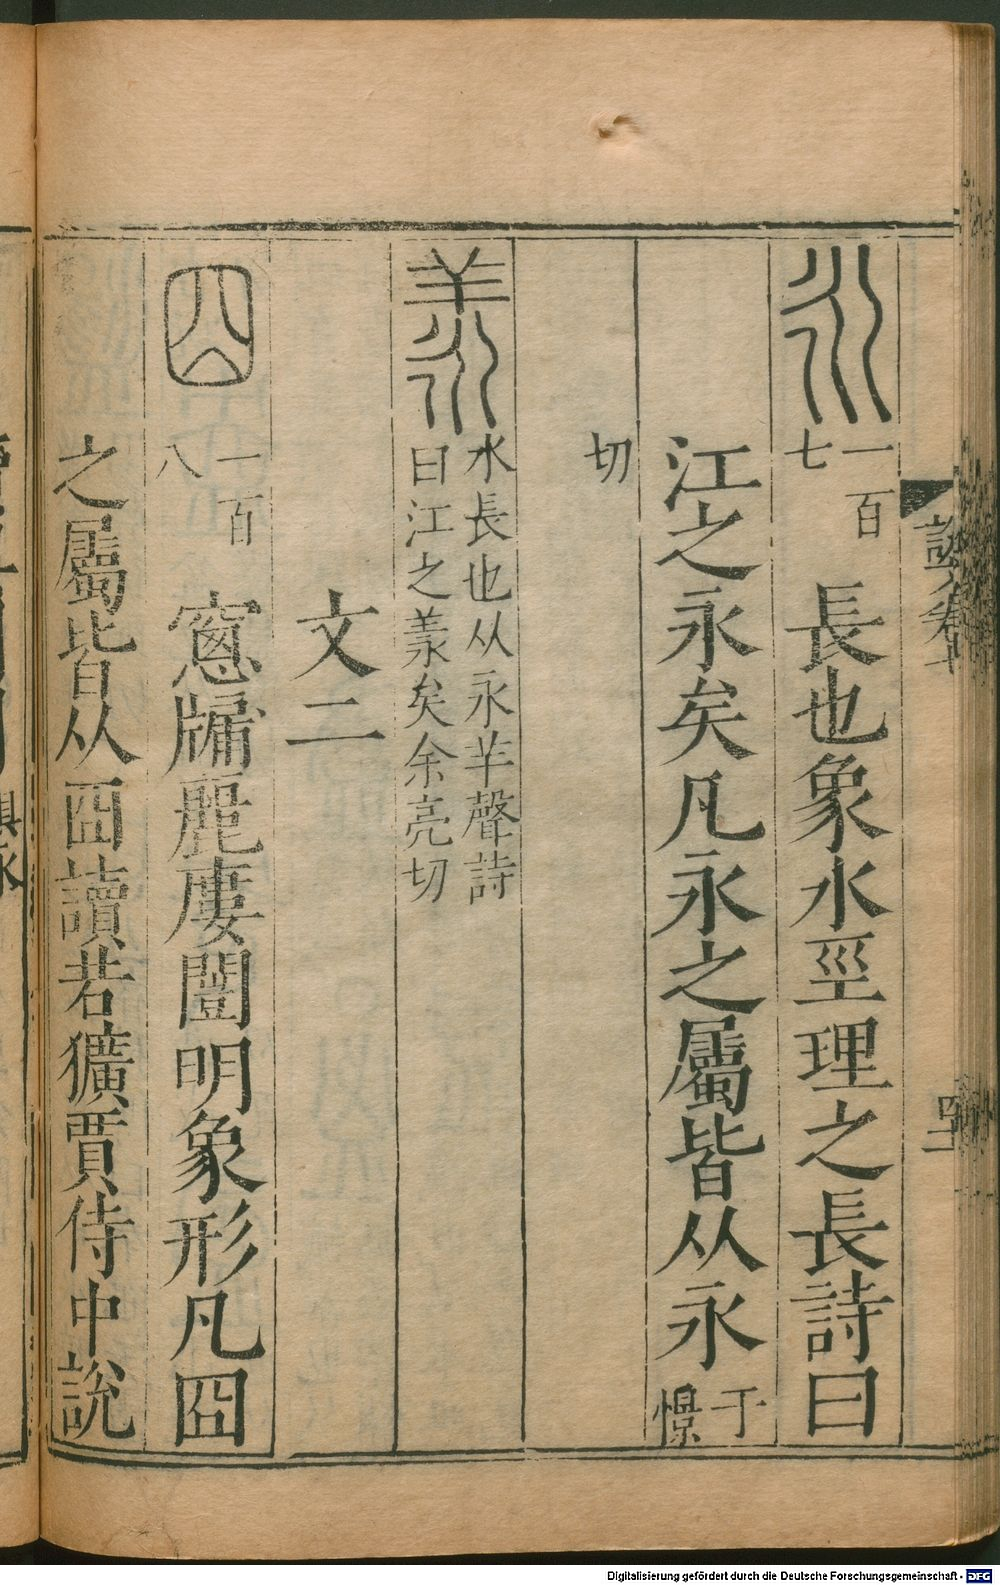 永
一百
七
長也象水巠理之長詩曰
江之永矣凡永之屬皆从永
于
憬
切
羕
水長也从永羊聲詩
曰江之羕矣余亮切
文二
囧
一百
八
窻牖麗廔闓明象形凡囧
之屬皆从囧讀若獷賈侍中說
Digitalisierung gefördert durch die Deutsche Forschungsgemeinschaft - DFG